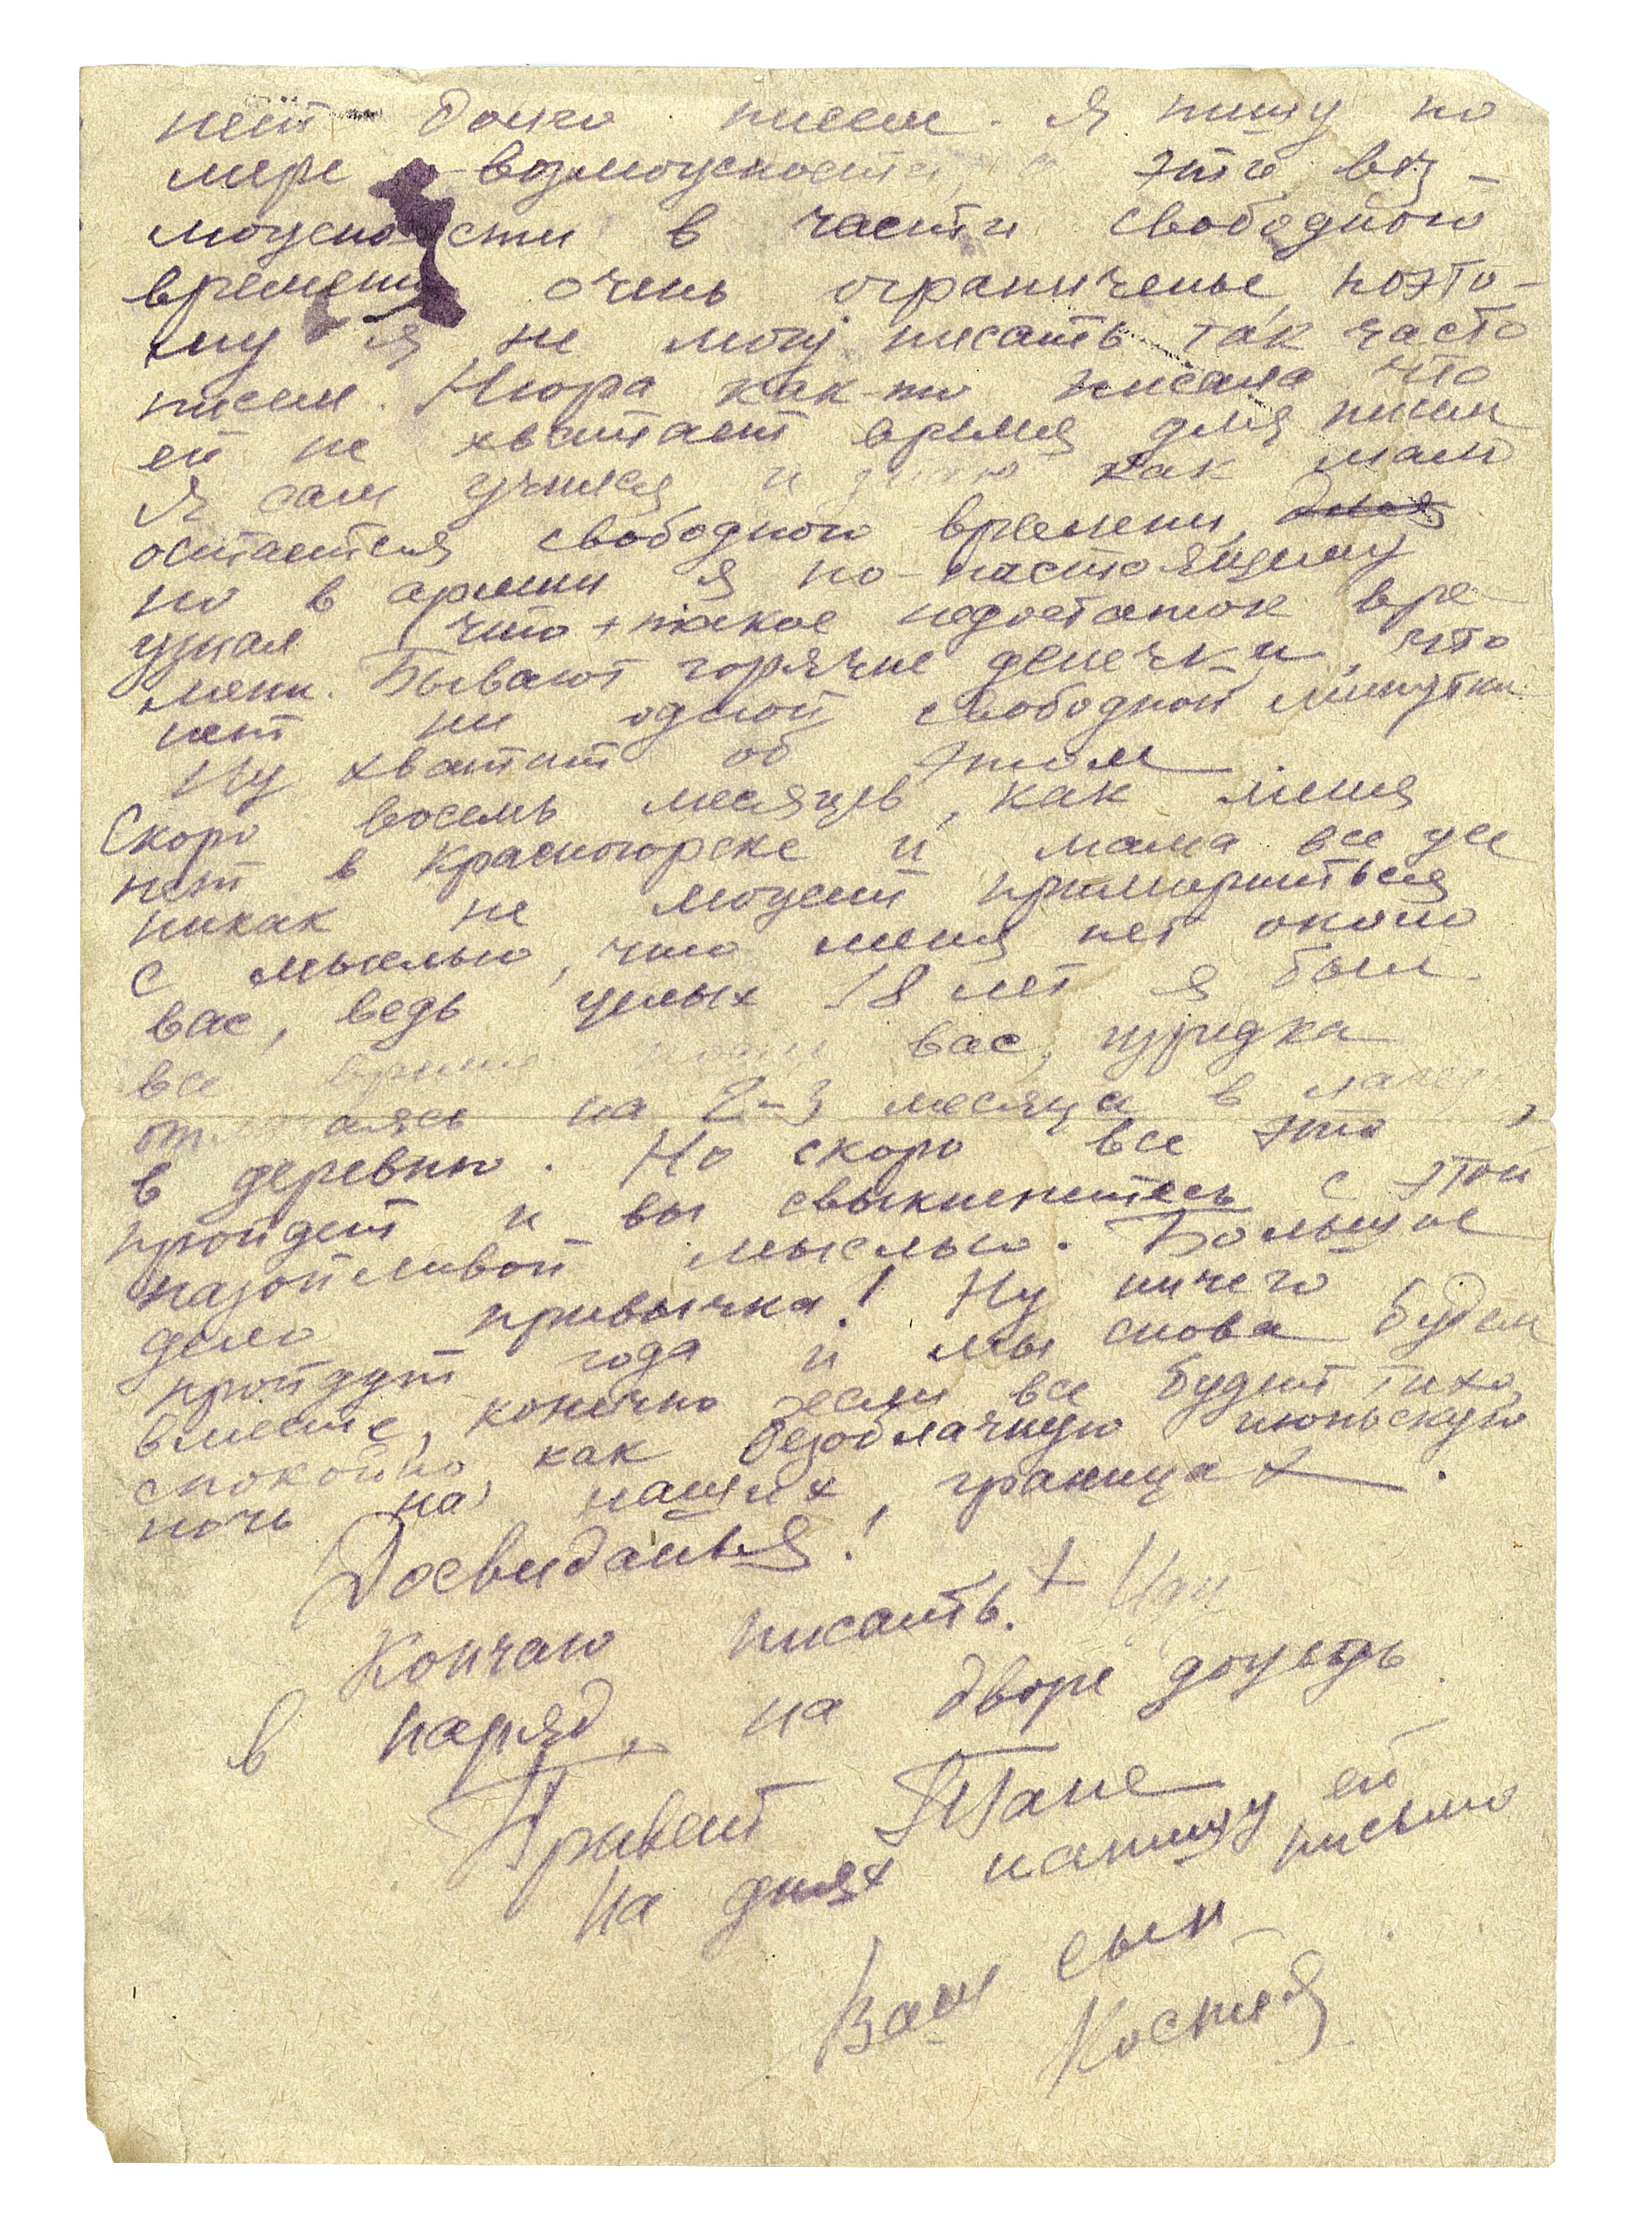 нет долго писем. Я пишу по
мере возможности, а эти воз-
можности в части свободного
времени очень ограниченые, поэто-
му я не могу писать так часто
писем. Нюра как-то писала что
ей не хватает время для писем
Я сам учился и знаю как мало
остается свободного времени, для
но в армии я по-настоящему
узнал что такое недостаток вре-
мени. Бывают горячие денечки, что
нет ни одной свободной минутки
Ну хватит об этом
Скоро восемь месяцев, как меня
нет в Красногорске и мама все же
никак не может примириться
с мыслью, что меня нет около
вас, ведь целых 18 лет я был
все время возле вас, изредка
отлучаясь на 2-3 месяца в лагерь,
в деревню. Но скоро все это
пройдет и вы свыкнетесь с этой
назойливой мыслью. Большое
дело привычка! Ну ничего
пройдут года и мы снова будем
вместе, конечно если все будет тихо,
спокойно, как безоблачную июньскую
ночь на наших границах.
Досвиданья!
Кончаю писать. Иду
в наряд, на дворе дождь.
Привет Тане
На днях напишу ей
письмо
Ваш сын
Костя